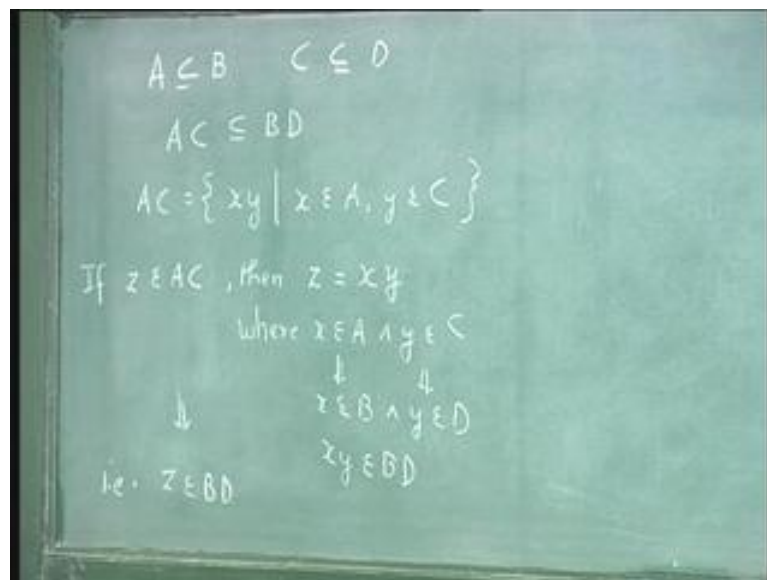 A ⊆ B C ⊆ D
AC ⊆ BD
AC = { xy | x ε A, y ε C }
If z ε AC, then z = xy
where x ε A ∧ y ε C
⇓ ⇓
⇓ x ε B ∧ y ε D
xy ε BD
i.e. z ε BD